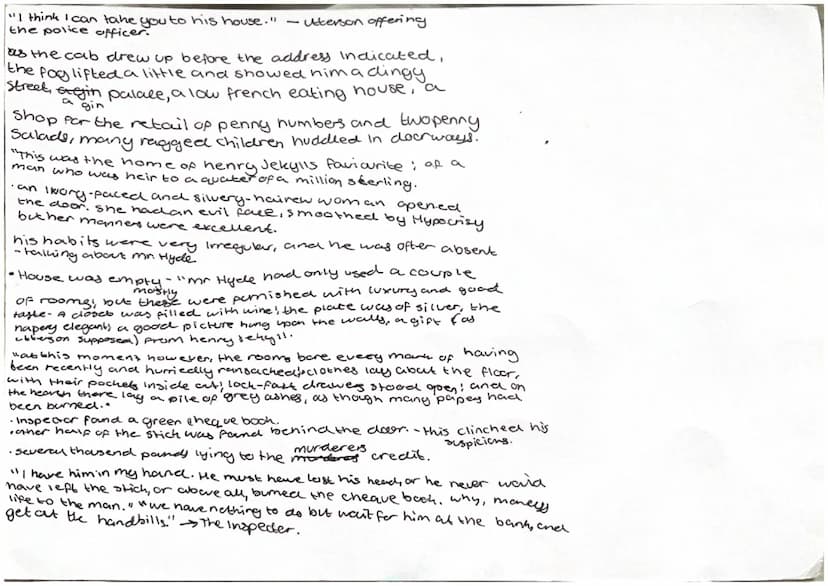 "I think I can take you to his house." - Utterson offering
the police officer.
as the cab drew up before the address indicated,
the fog lifted a little and showed him a dingy
street, a gin palace, a low french eating house, a
a gin
shop for the retail of penny numbers and twopenny
salads, many ragged children huddled in doorways.
"This was the home of henry Jekylls faviourite ; of a
man who was heir to a quater of a million sterling.
· an Ivory-faced and silvery-haired woman opened
the door. she had an evil face, smoothed by Hypocrisy
but her manners were excellent.
his habits were very irregular, and he was often absent
- talking about mr Hyde
• House was empty - "mr Hyde had only used a couple
mostly
of rooms, but these were furnished with luxury and good
taste - A closet was filled with wine; the plate was of silver, the
napery elegant; a good picture hung upon the walls, a gift (as
utterson supposed) from henry Jekyll".
"at this moment however, the rooms bore every mark of having
been recently and hurriedly ransacked; clothes lay about the floor,
with their pockets inside out; lock-fast drawers stood open; and on
the hearth there lay a pile of grey ashes, as though many papers had
been burned."
· Inspector found a green cheque book.
• other half of the stick was found behind the door. - this clinched his
suspicions.
· several thousand pounds lying to the murderers credit.
"I have him in my hand. He must have lost his head, or he never would
have left the stick, or above all, burned the cheque book. why, moneys
life to the man." "we have nothing to do but wait for him at the bank, and
get out the handbills." → The Inspecter.